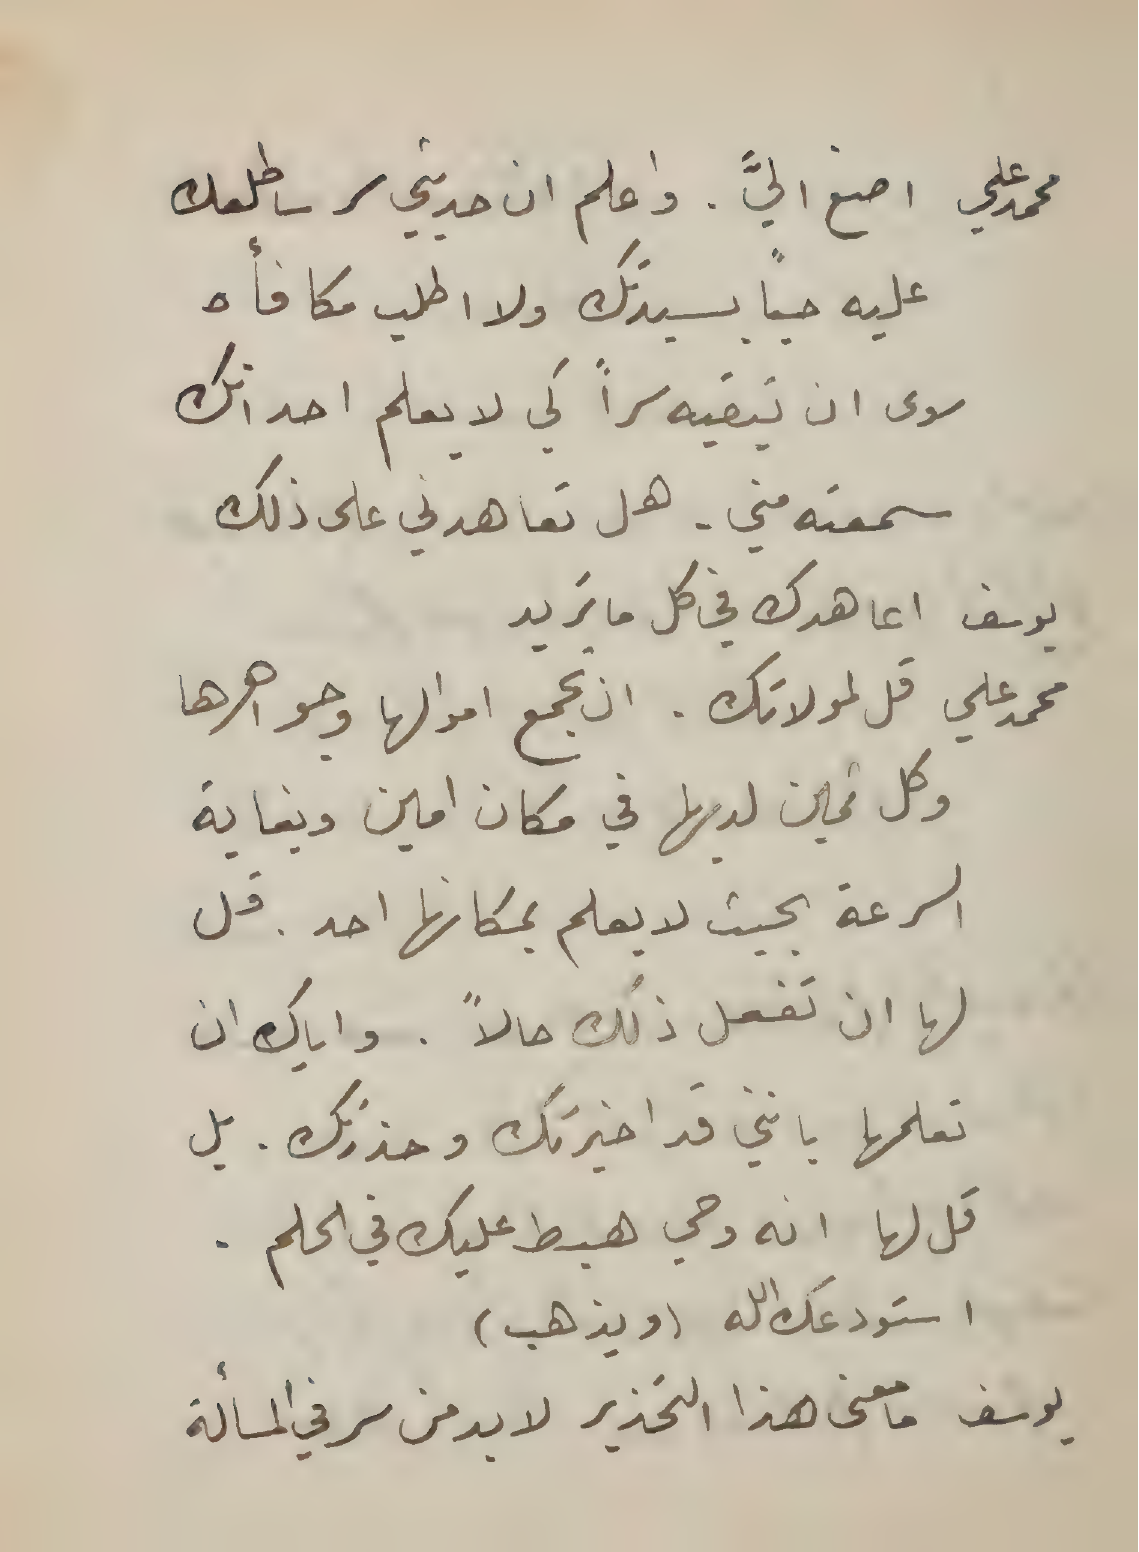 محمد علي اصغ اليَّ . واعلم ان حديثي سر ساطلعك
عليه حباً بسيدتك ولا اطلب مكافأه
سوى ان تبقيه سراً كي لا يعلم احد انك
سمعته مني . هل تعاهدني على ذلك
يوسف اعاهدك في كل ما تريد
محمد علي قل لمولاتك . ان تجمع اموالها وجواهرها
وكل ثمين لديها في مكان امين وبغاية
السرعة بحيث لا يعلم بمكانها احد . قل
لها ان تفعل ذلك حالاً . واياك ان
تعلمها بانني قد اخبرتك وحذرتك . بل
قل لها انه وحي هبط عليك في الحلم .
استودعك الله (ويذهب)
يوسف ما معنى هذا التحذير لا بد من سر في المسألة